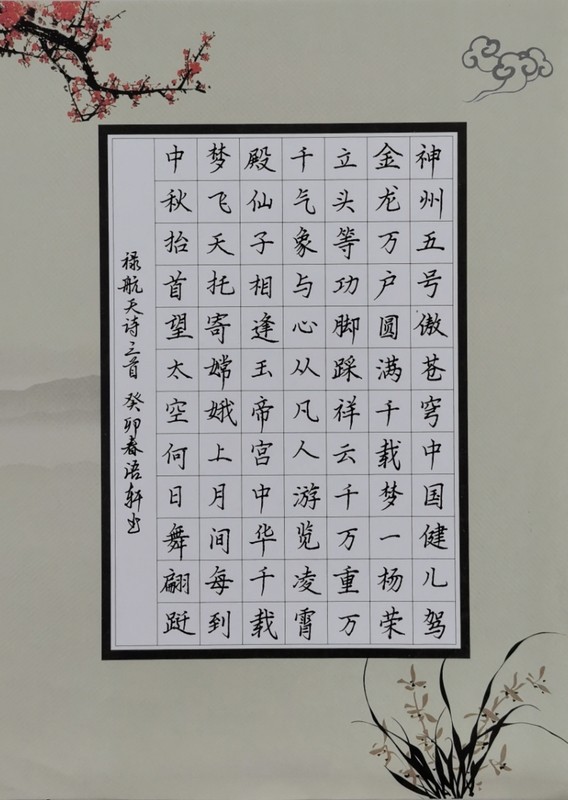 神州五号傲苍穹中国健儿驾
金龙万户圆满千载梦一杨荣
立头等功脚踩祥云千万重万
千气象与心从凡人游览凌霄
殿仙子相逢玉帝宫中华千载
梦飞天托寄嫦娥上月间每到
中秋抬首望太空何日舞翩跹
禄航天诗三首 癸卯春语轩书